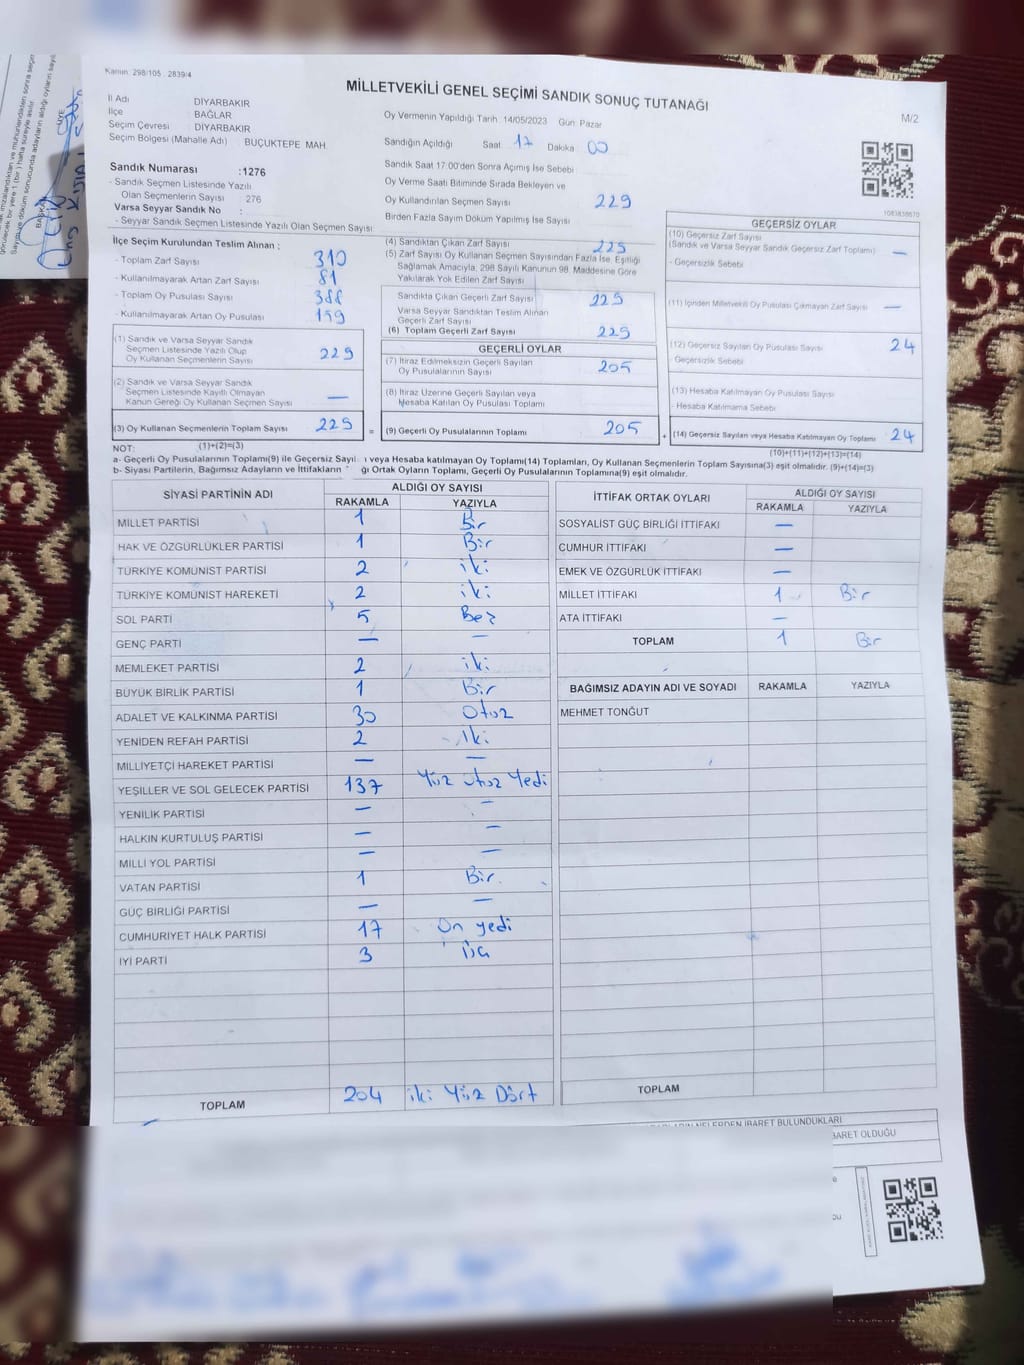 Kanun: 298/105 . 2839/4
MİLLETVEKİLİ GENEL SEÇİMİ SANDIK SONUÇ TUTANAĞI
M/2
İl Adı DİYARBAKIR
İlçe BAĞLAR
Seçim Çevresi : DİYARBAKIR
Seçim Bölgesi (Mahalle Adı) BUÇUKTEPE MAH.
Oy Vermenin Yapıldığı Tarih: 14/05/2023 Gün: Pazar
Sandığın Açıldığı Saat 17 Dakika 00
Sandık Saat 17:00'den Sonra Açımış İse Sebebi
Oy Verme Saati Bitiminde Sırada Bekleyen ve
Oy Kullandırılan Seçmen Sayısı 229
Birden Fazla Sayım Döküm Yapılmış İse Sayısı
Sandık Numarası :1276
- Sandık Seçmen Listesinde Yazılı
Olan Seçmenlerin Sayısı : 276
Varsa Seyyar Sandık No :
- Seyyar Sandık Seçmen Listesinde Yazılı Olan Seçmen Sayısı
1083838670
İlçe Seçim Kurulundan Teslim Alınan ;
- Toplam Zarf Sayısı 310
- Kullanılmayarak Artan Zarf Sayısı 81
- Toplam Oy Pusulası Sayısı 388
- Kullanılmayarak Artan Oy Pusulası 159
(1) Sandık ve Varsa Seyyar Sandık
Seçmen Listesinde Yazılı Olup
Oy Kullanan Seçmenlerin Sayısı 229
(2) Sandık ve Varsa Seyyar Sandık
Seçmen Listesinde Kayıtlı Olmayan
Kanun Gereği Oy Kullanan Seçmen Sayısı —
(3) Oy Kullanan Seçmenlerin Toplam Sayısı 229
(1)+(2)=(3)
(4) Sandıktan Çıkan Zarf Sayısı 229
(5) Zarf Sayısı Oy Kullanan Seçmen Sayısından Fazla İse, Eşitliği
Sağlamak Amacıyla, 298 Sayılı Kanunun 98. Maddesine Göre
Yakılarak Yok Edilen Zarf Sayısı
Sandıkta Çıkan Geçerli Zarf Sayısı 229
Varsa Seyyar Sandıktan Teslim Alınan
Geçerli Zarf Sayısı
(6) Toplam Geçerli Zarf Sayısı 229
GEÇERLİ OYLAR
(7) İtiraz Edilmeksizin Geçerli Sayılan
Oy Pusulalarının Sayısı 205
(8) İtiraz Üzerine Geçerli Sayılan veya
Hesaba Katılan Oy Pusulası Toplamı
= (9) Geçerli Oy Pusulalarının Toplamı 205
GEÇERSİZ OYLAR
(10) Geçersiz Zarf Sayısı
(Sandık ve Varsa Seyyar Sandık Geçersiz Zarf Toplamı) —
- Geçersizlik Sebebi
(11) İçinden Milletvekili Oy Pusulası Çıkmayan Zarf Sayısı —
(12) Geçersiz Sayılan Oy Pusulası Sayısı 24
- Geçersizlik Sebebi
(13) Hesaba Katılmayan Oy Pusulası Sayısı
- Hesaba Katılmama Sebebi
+ (14) Geçersiz Sayılan veya Hesaba Katılmayan Oy Toplamı 24
(10)+(11)+(12)+(13)=(14)
NOT:
a- Geçerli Oy Pusulalarının Toplamı(9) ile Geçersiz Sayıl veya Hesaba katılmayan Oy Toplamı(14) Toplamları, Oy Kullanan Seçmenlerin Toplam Sayısına(3) eşit olmalıdır. (9)+(14)=(3)
b- Siyasi Partilerin, Bağımsız Adayların ve İttifakların ğı Ortak Oyların Toplamı, Geçerli Oy Pusulalarının Toplamına(9) eşit olmalıdır.
SİYASİ PARTİNİN ADI ALDIĞI OY SAYISI
RAKAMLA YAZIYLA
MİLLET PARTİSİ 1 Bir
HAK VE ÖZGÜRLÜKLER PARTİSİ 1 Bir
TÜRKİYE KOMÜNİST PARTİSİ 2 iki
TÜRKİYE KOMÜNİST HAREKETİ 2 iki
SOL PARTİ 5 Beş
GENÇ PARTİ — —
MEMLEKET PARTİSİ 2 iki
BÜYÜK BİRLİK PARTİSİ 1 Bir
ADALET VE KALKINMA PARTİSİ 30 Otuz
YENİDEN REFAH PARTİSİ 2 iki
MİLLİYETÇİ HAREKET PARTİSİ — —
YEŞİLLER VE SOL GELECEK PARTİSİ 137 Yüz otuz Yedi
YENİLİK PARTİSİ — —
HALKIN KURTULUŞ PARTİSİ — —
MİLLİ YOL PARTİSİ — —
VATAN PARTİSİ 1 Bir
GÜÇ BİRLİĞİ PARTİSİ — —
CUMHURİYET HALK PARTİSİ 17 On yedi
İYİ PARTİ 3 üç
TOPLAM 204 iki Yüz Dört
İTTİFAK ORTAK OYLARI ALDIĞI OY SAYISI
RAKAMLA YAZIYLA
SOSYALİST GÜÇ BİRLİĞİ İTTİFAKI —
CUMHUR İTTİFAKI —
EMEK VE ÖZGÜRLÜK İTTİFAKI —
MİLLET İTTİFAKI 1 Bir
ATA İTTİFAKI —
TOPLAM 1 Bir
BAĞIMSIZ ADAYIN ADI VE SOYADI RAKAMLA YAZIYLA
MEHMET TONĞUT
TOPLAM
NELERDEN İBARET BULUNDUKLARI
BARET OLDUĞU
BAŞKAN
ÜYE